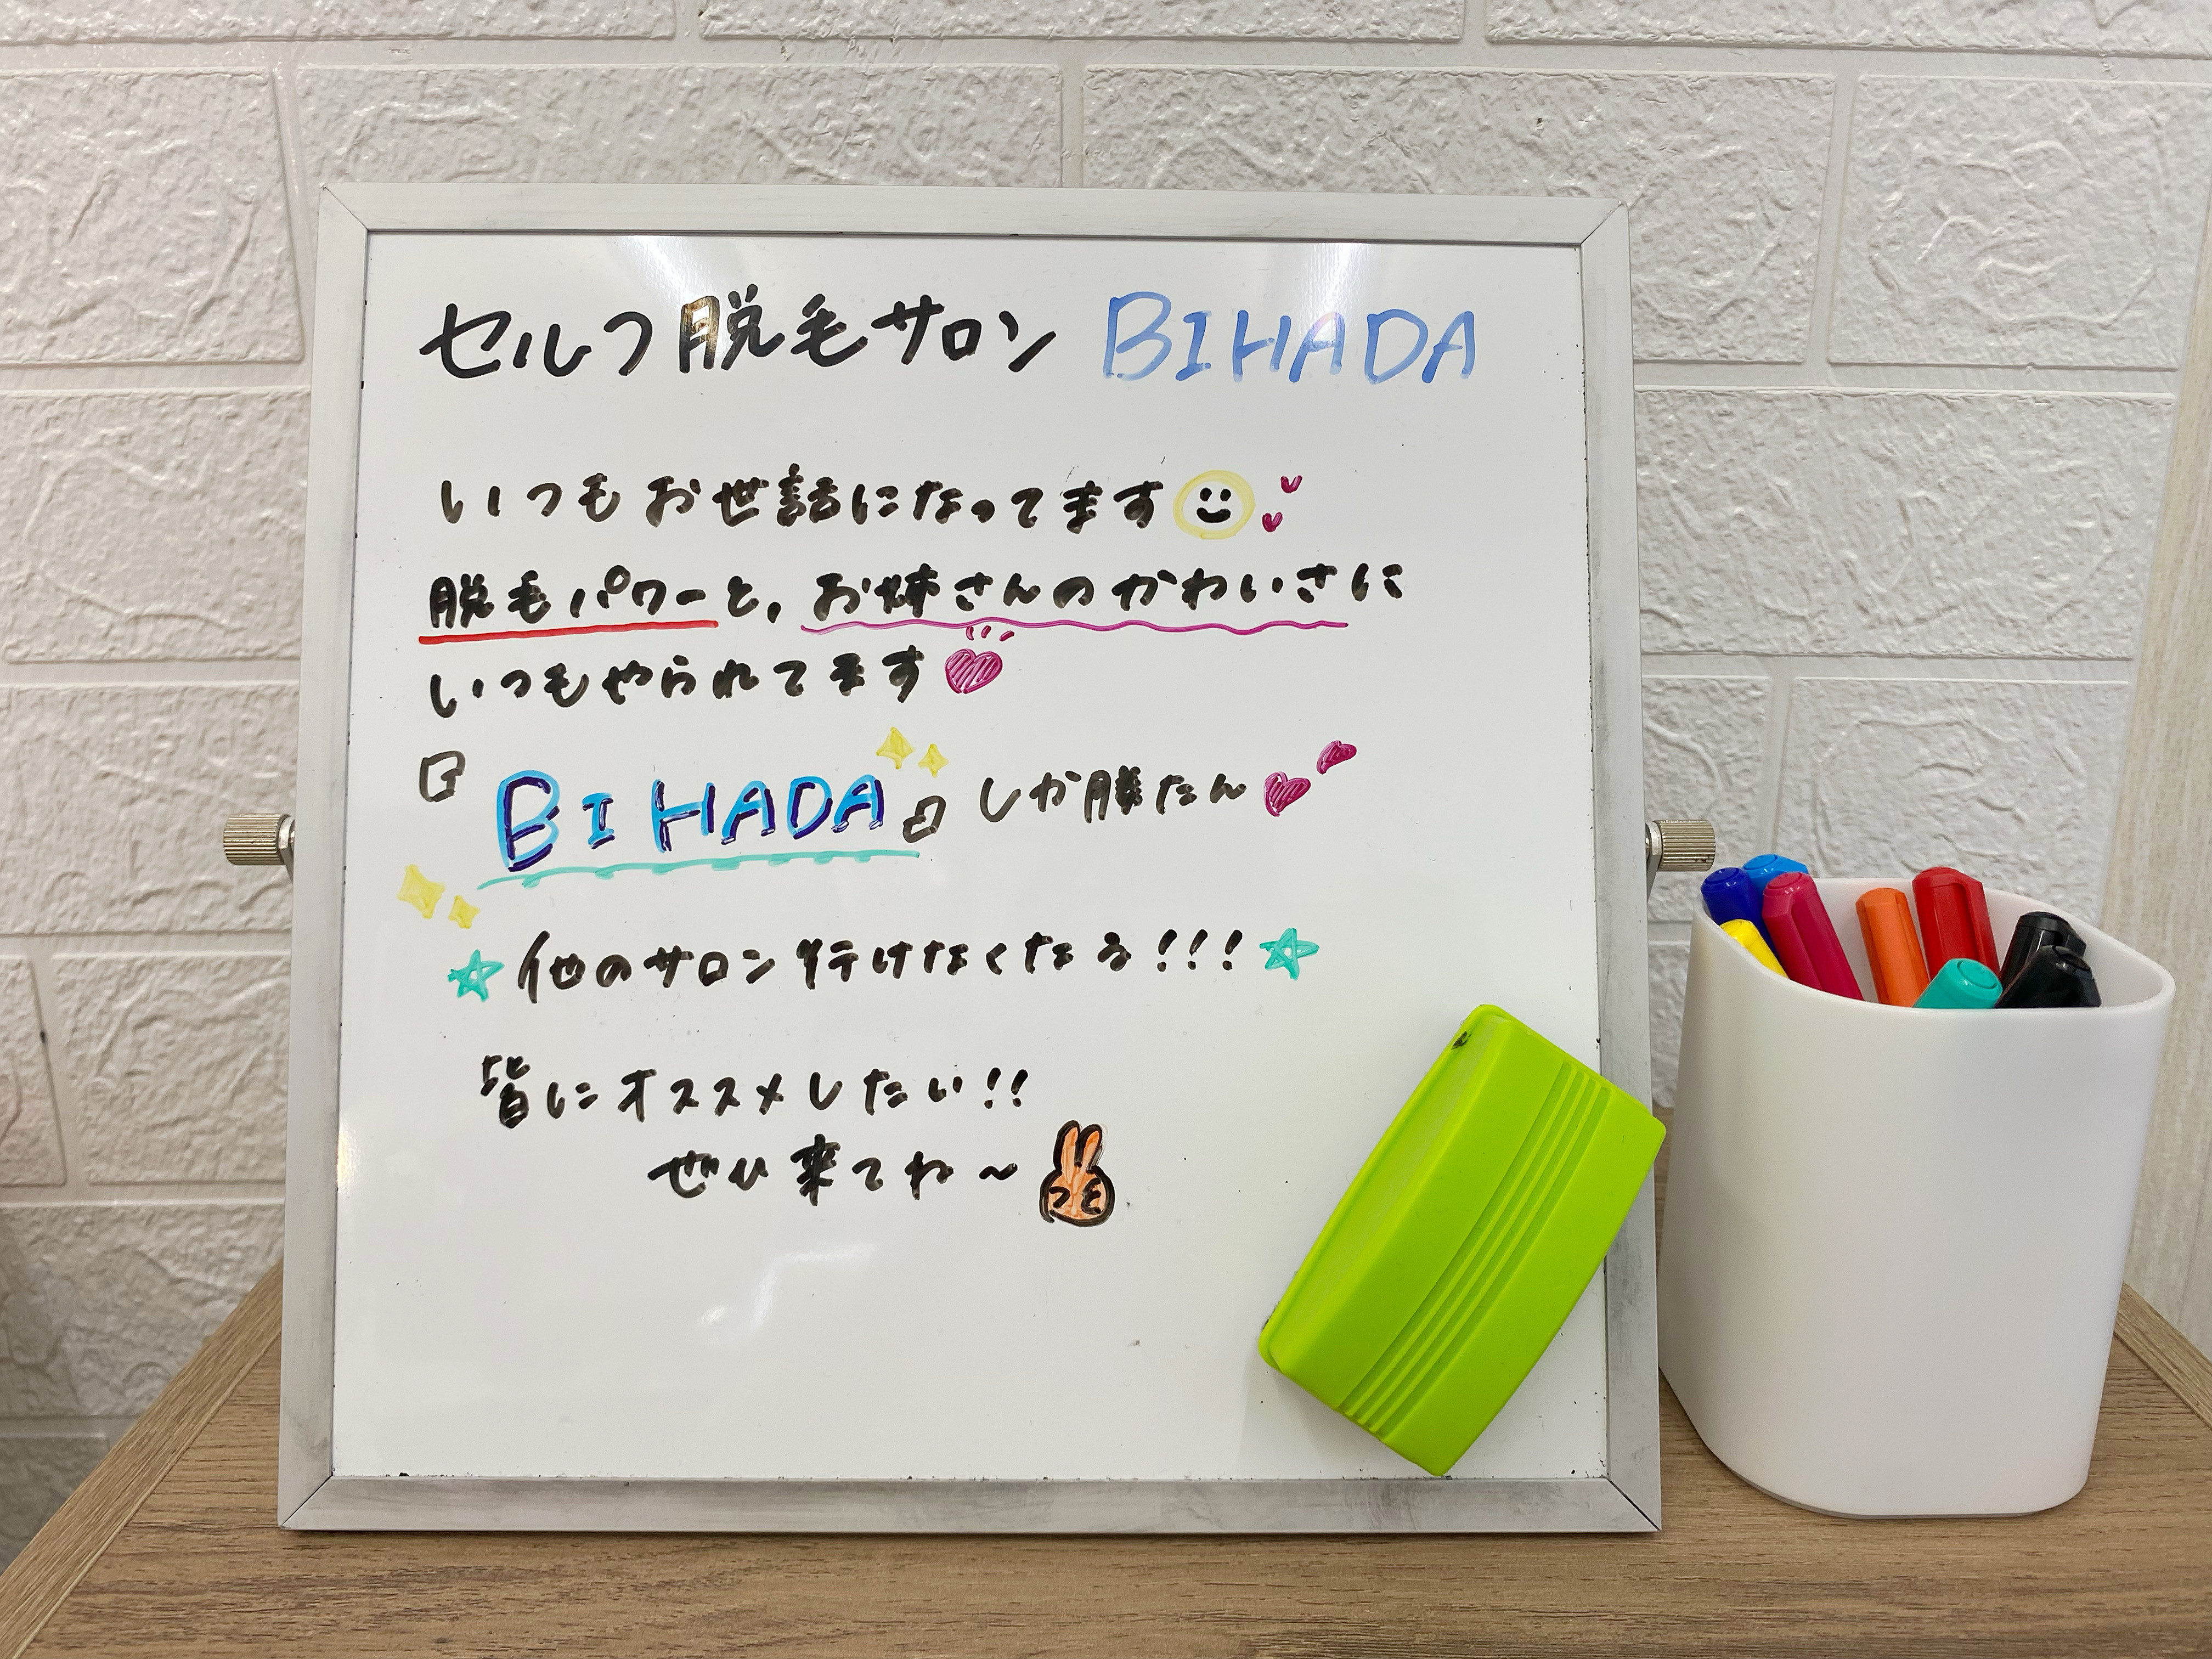 セルフ脱毛サロン BIHADA
いつもお世話になってます
脱毛パワーと、お姉さんのかわいさに
いつもやられてます
『BIHADA』しか勝たん
他のサロン行けなくなる!!!
皆にオススメしたい!!
ぜひ来てね～